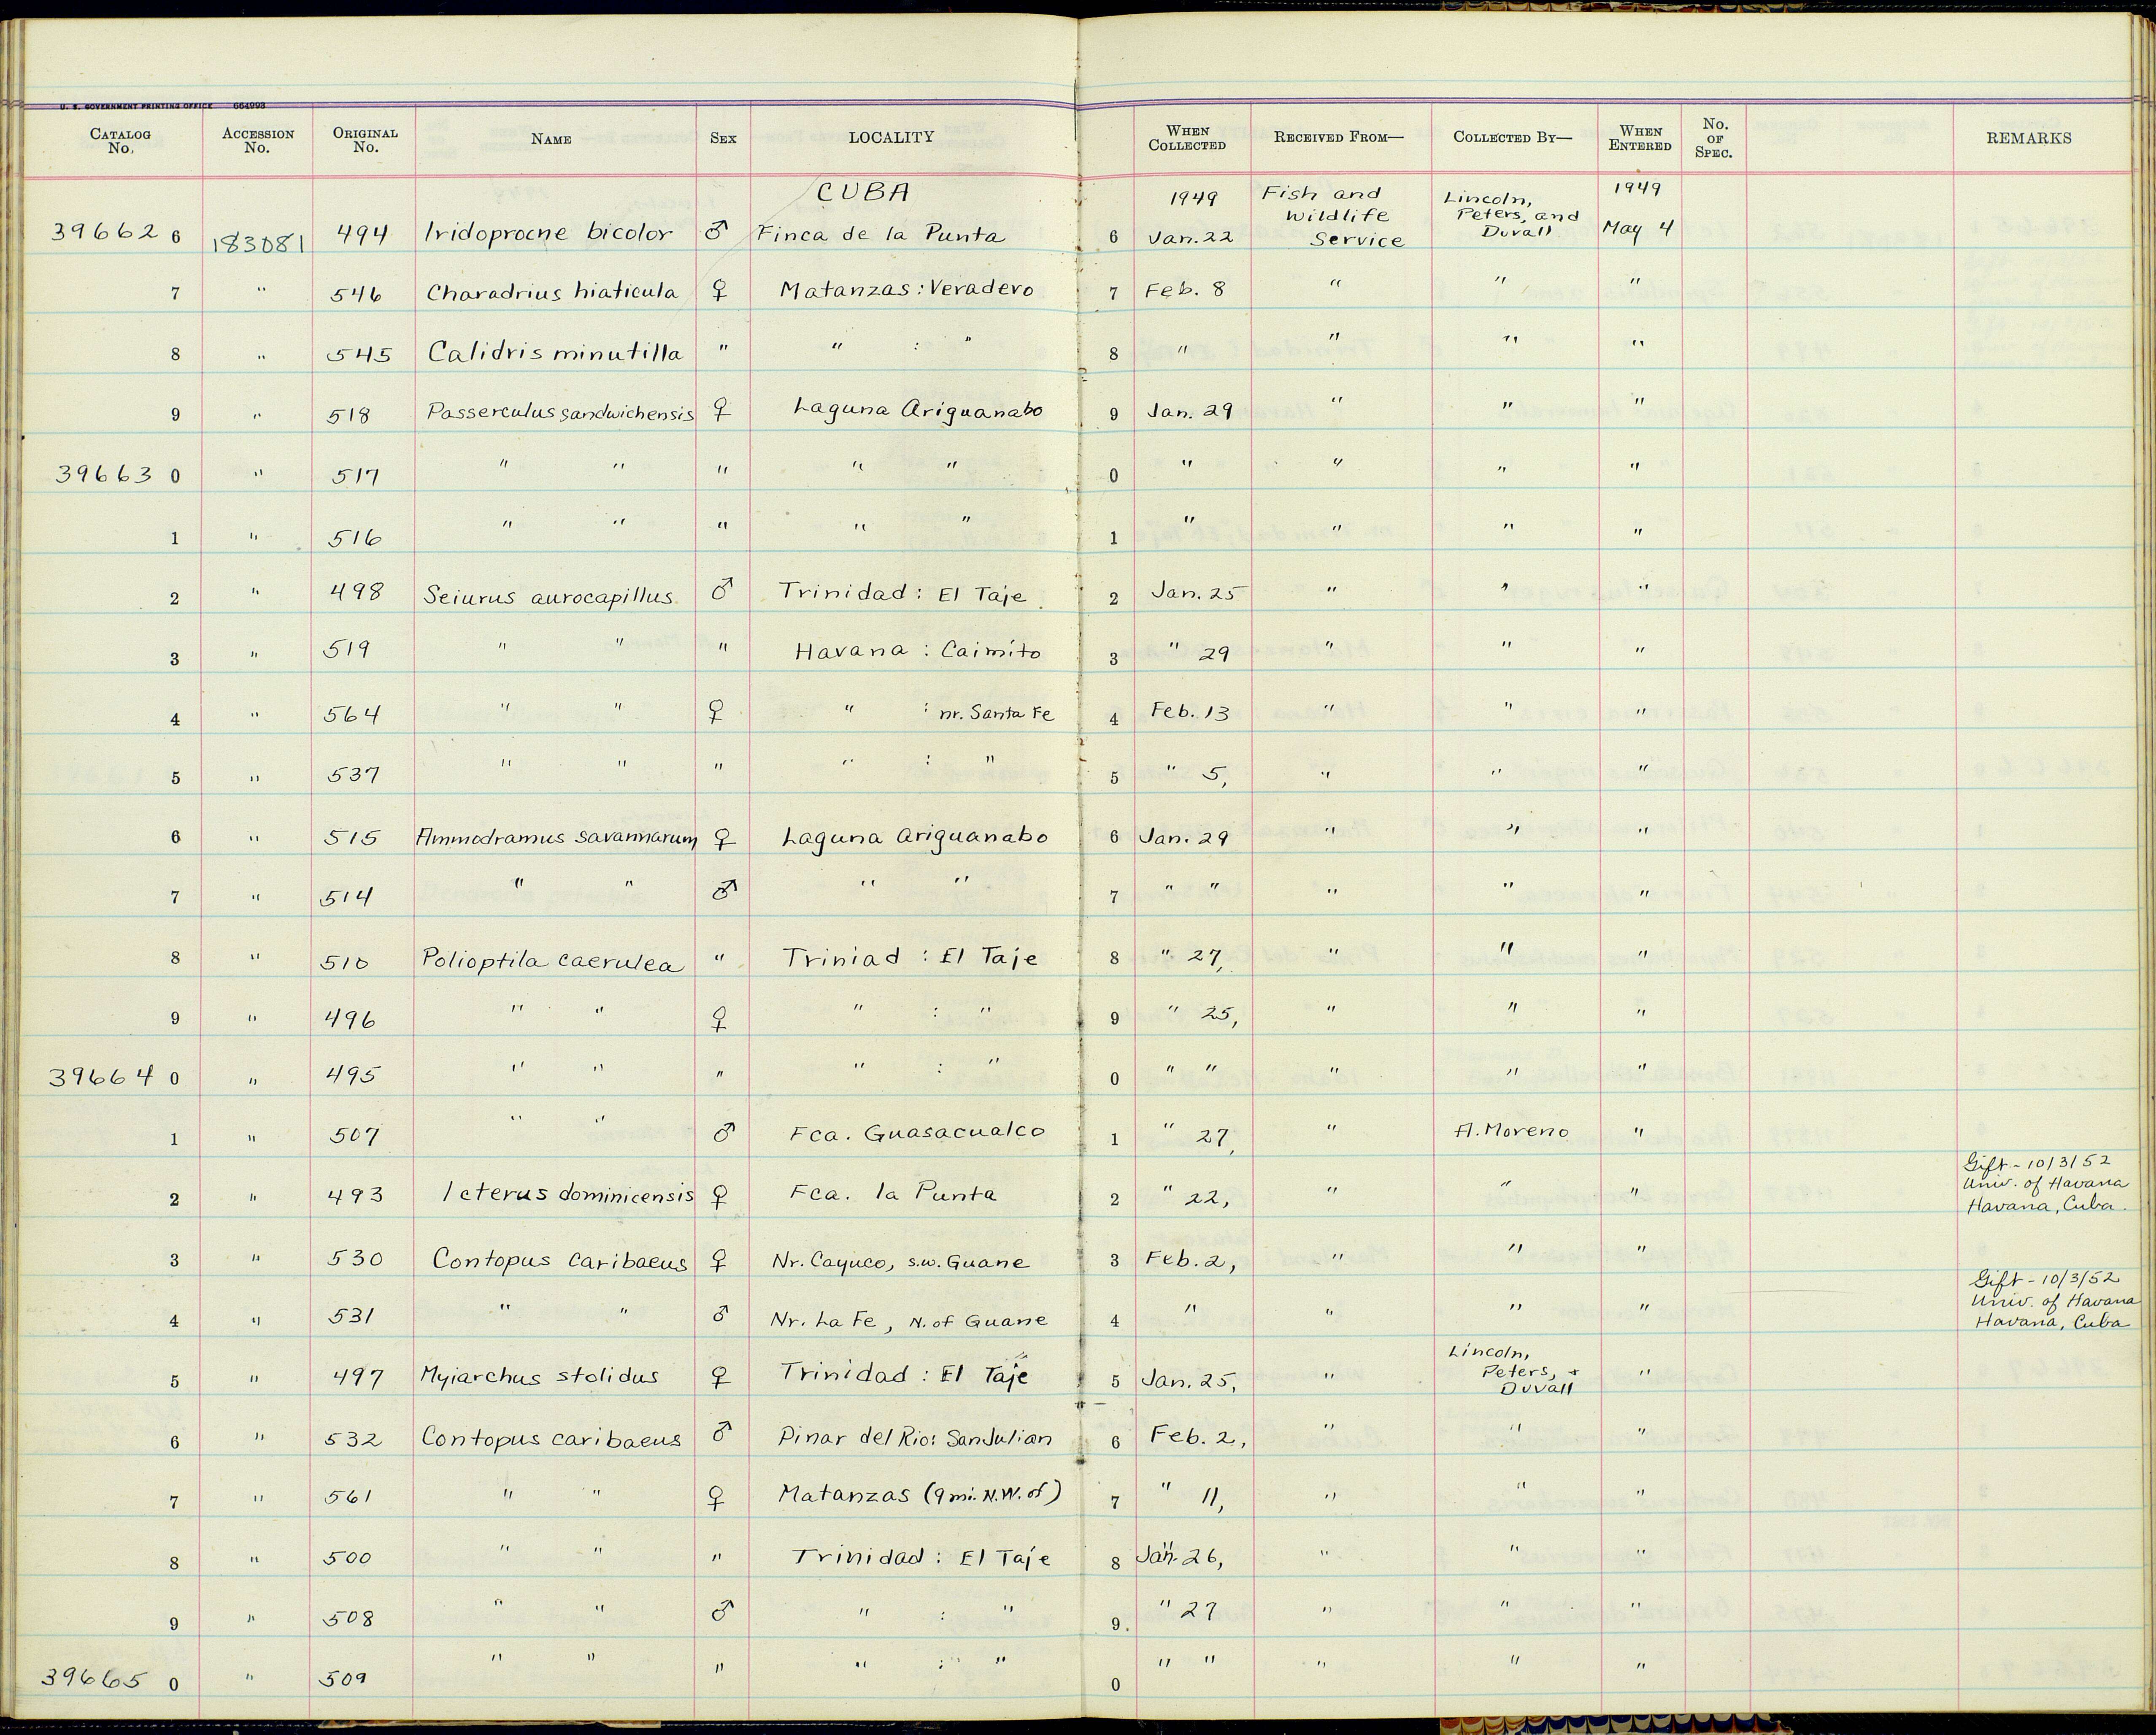 U. S. GOVERNMENT PRINTING OFFICE 664993
CATALOG No. ACCESSION No. ORIGINAL No. NAME SEX LOCALITY WHEN COLLECTED RECEIVED FROM— COLLECTED BY— WHEN ENTERED No. OF SPEC. REMARKS
CUBA 1949 Fish and Wildlife Service Lincoln, Peters, and Duvall 1949
39662 6 183081 494 Iridoprocne bicolor ♂ Finca de la Punta 6 Jan. 22 May 4
7 " 546 Charadrius hiaticula ♀ Matanzas : Veradero 7 Feb. 8 " " "
8 " 545 Calidris minutilla " " : " 8 " " " "
9 " 518 Passerculus sandwichensis ♀ Laguna Ariguanabo 9 Jan. 29 " " "
39663 0 " 517 " " " " " 0 " " " "
1 " 516 " " " " " 1 " " " "
2 " 498 Seiurus aurocapillus. ♂ Trinidad : El Taje. 2 Jan. 25 " " "
3 " 519 " " " Havana : Caimito 3 " 29 " " "
4 " 564 " " ♀ " : nr. Santa Fe 4 Feb. 13 " " "
5 " 537 " " " " : " 5 " 5, " " "
6 " 515 Ammodramus savannarum ♀ Laguna Ariguanabo 6 Jan. 29 " " "
7 " 514 " " ♂ " " 7 " " " " "
8 " 510 Polioptila caerulea " Triniad : El Taje 8 " 27, " " "
9 " 496 " " ♀ " : " 9 " 25, " " "
39664 0 " 495 " " " " : " 0 " " " " "
1 " 507 " " ♂ Fca. Guasacualco 1 " 27, " A. Moreno "
2 " 493 Icterus dominicensis ♀ Fca. la Punta 2 " 22, " " " Gift - 10/3/52
Univ. of Havana
Havana, Cuba.
3 " 530 Contopus caribaeus ♀ Nr. Cayuco, s.w. Guane 3 Feb. 2, " " "
4 " 531 " " ♂ Nr. La Fe, N. of Guane 4 " " " " Gift - 10/3/52
Univ. of Havana
Havana, Cuba
5 " 497 Myiarchus stolidus ♀ Trinidad : El Taje 5 Jan. 25, " Lincoln, Peters, + Duvall "
6 " 532 Contopus caribaeus ♂ Pinar del Rio: San Julian 6 Feb. 2, " " "
7 " 561 " " ♀ Matanzas (9 mi. N.W. of) 7 " 11, " " "
8 " 500 " " " Trinidad : El Taje 8 Jan. 26, " " "
9 " 508 " " ♂ " : " 9. " 27 " " "
39665 0 " 509 " " " " : " 0 " " " " "